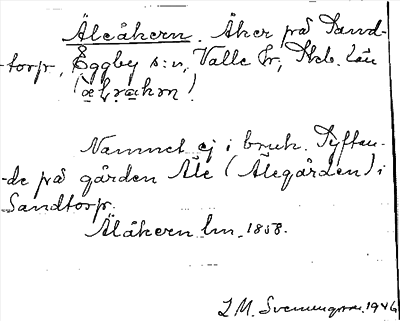 Äleåkern. Åker på Sand-
torp, Eggby s:n, Valle hr, Skb. län
Namnet ej i bruk. Syftan-
de på gården Äle (Älegården) i
Sandtorp.
Äläkern lm 1858.
I. M. Svenungsson. 1946